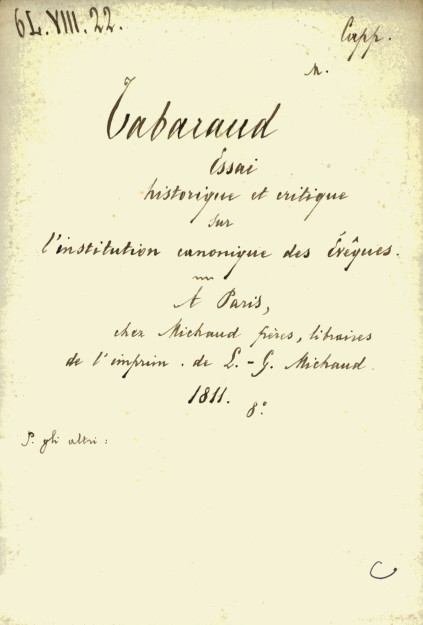 6L.VIII.22.
Capp.
M.
Tabaraud
Essai
historique et critique
sur
l'institution canonique des Évêques.
A Paris,
chez Michaud frères, libraires
de l'imprim. de L.-G. Michaud.
1811. 8°
P. gli altri: